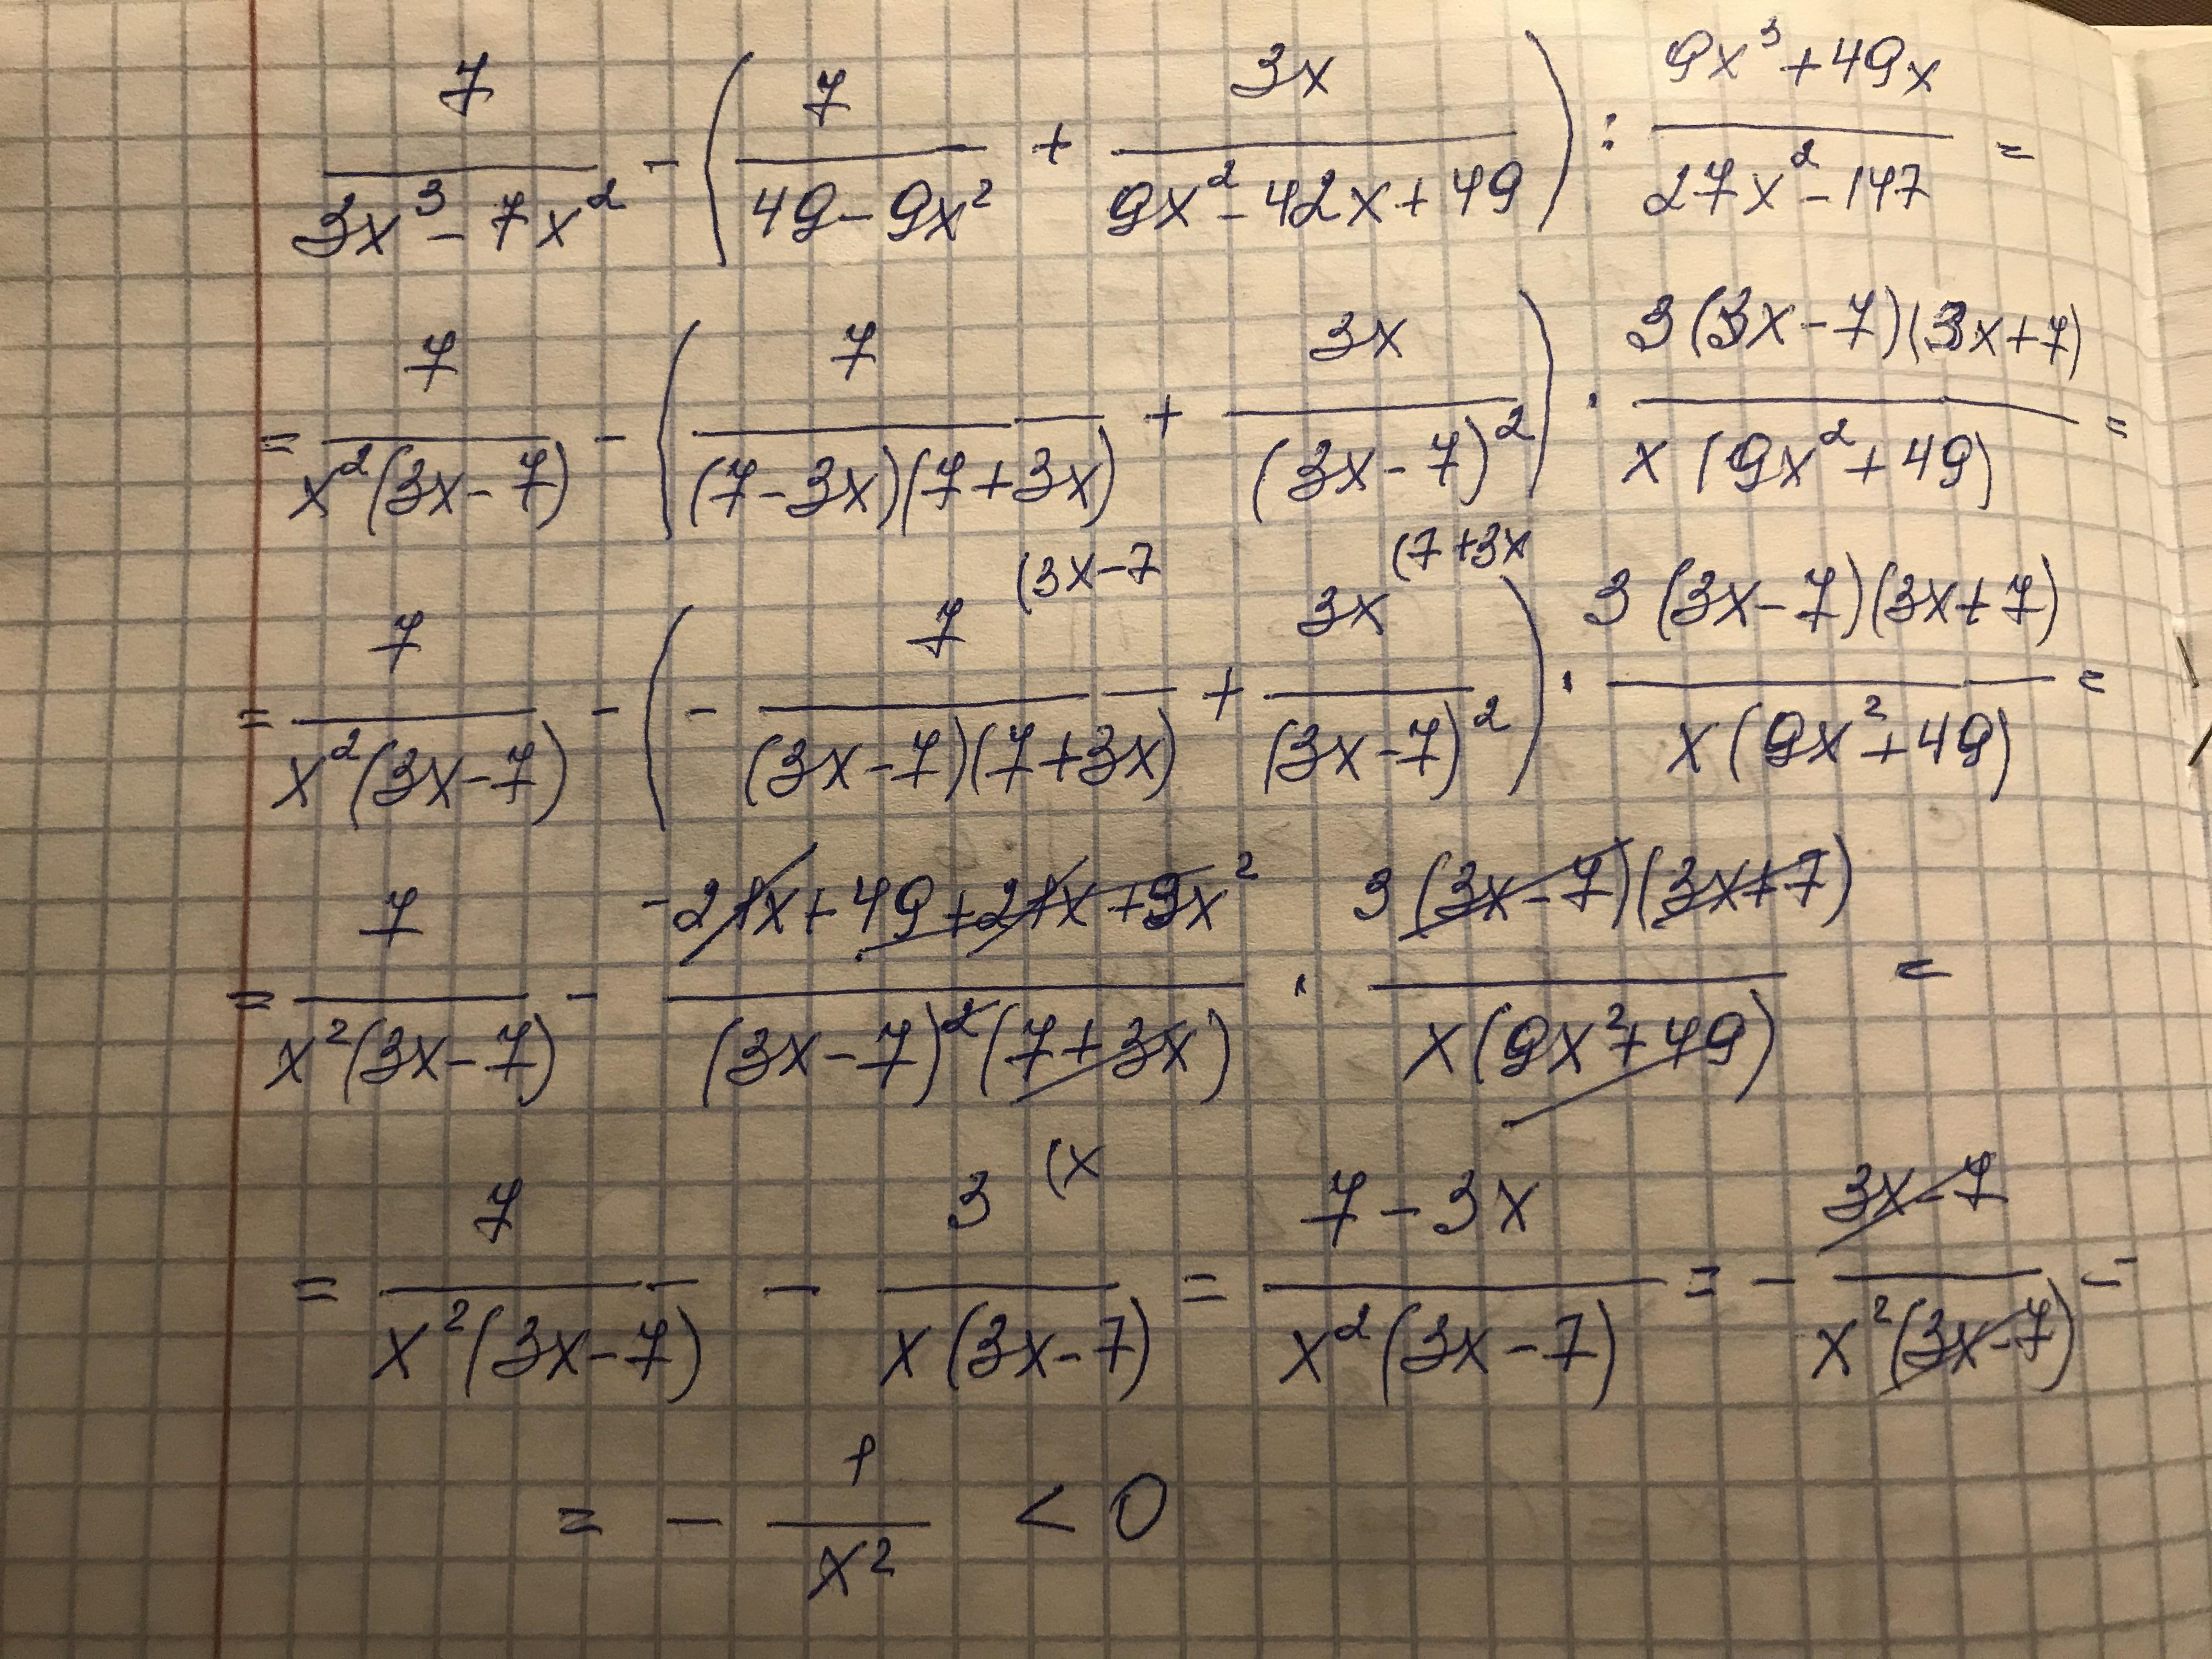 7/(3x³ - 7x²) - (7/(49 - 9x²) + 3x/(9x² - 42x + 49)) : (9x³ + 49x)/(27x² - 147) =
= 7/(x²(3x - 7)) - (7/((7 - 3x)(7 + 3x)) + 3x/(3x - 7)²) · 3(3x - 7)(3x + 7)/(x(9x² + 49)) =
= 7/(x²(3x - 7)) - (- 7 (3x - 7/((3x - 7)(7 + 3x)) + 3x (7 + 3x/(3x - 7)²) · 3(3x - 7)(3x + 7)/(x(9x² + 49)) =
= 7/(x²(3x - 7)) - (-21x + 49 + 21x + 9x²)/((3x - 7)²(7 + 3x)) · 3(3x - 7)(3x + 7)/(x(9x² + 49)) =
= 7/(x²(3x - 7)) - 3 (x/(x(3x - 7)) = (7 - 3x)/(x²(3x - 7)) = - (3x - 7)/(x²(3x - 7)) =
= - 1/x² < 0